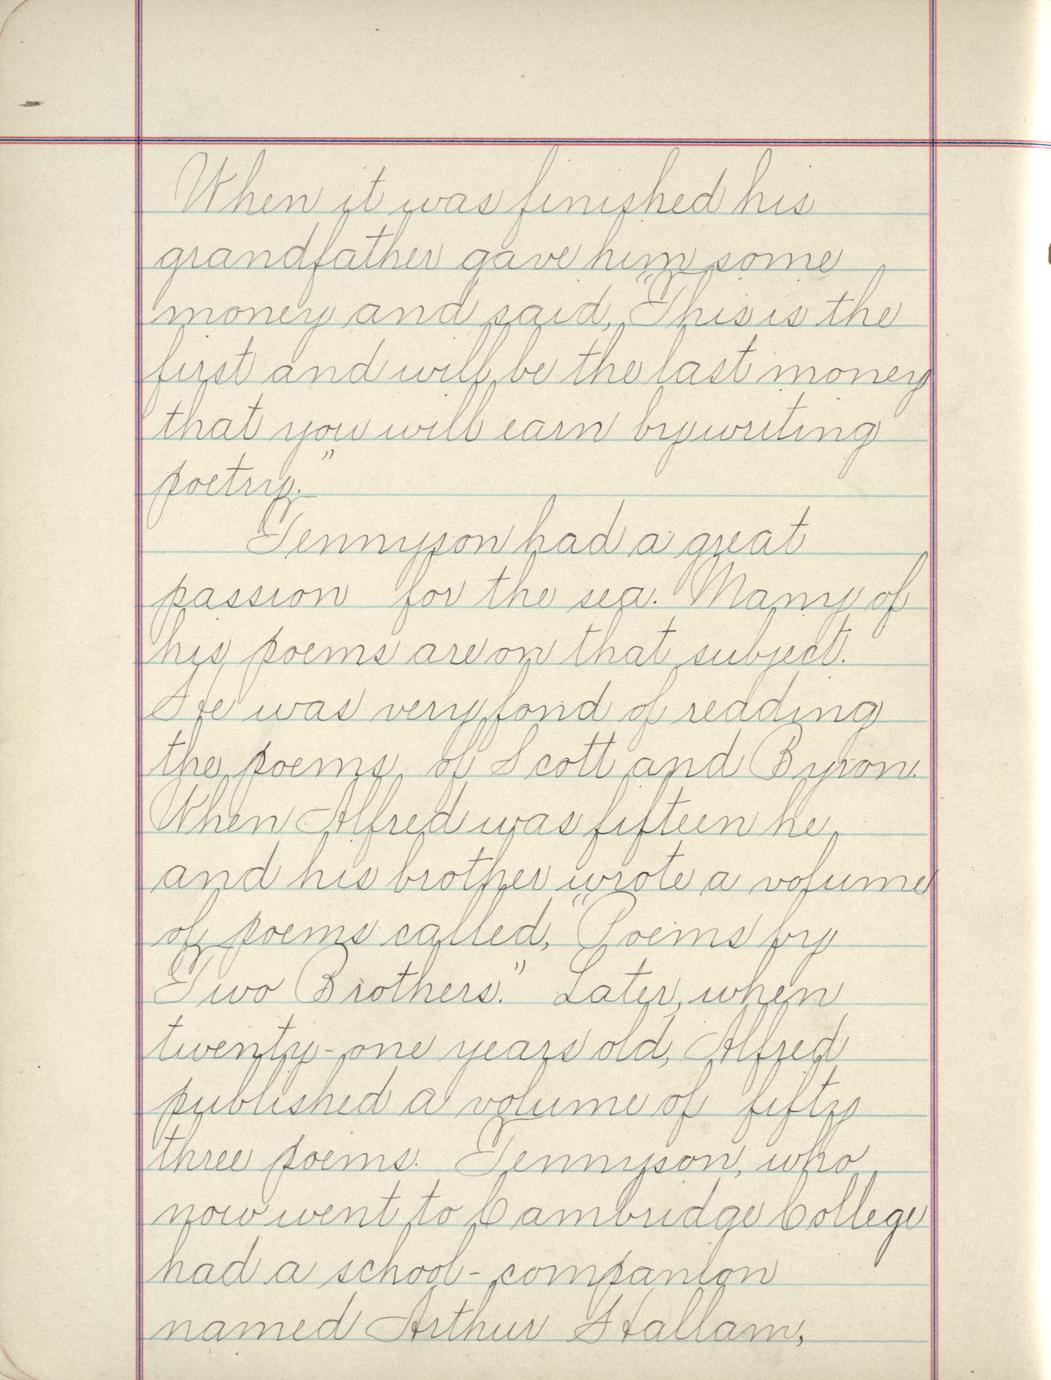 When it was finished his
grandfather gave him some
money and said, "This is the
first and will be the last money
that you will earn by writing
poetry."
Tennyson had a great
passion for the sea. Many of
his poems are on that subject.
He was very fond of reading
the poems of Scott and Byron.
When Alfred was fifteen he
and his brother wrote a volume
of poems called, "Poems by
Two Brothers." Later, when
twenty-one years old, Alfred
published a volume of fifty
three poems. Tennyson, who
now went to Cambridge College
had a school-companion
named Arthur Hallam,